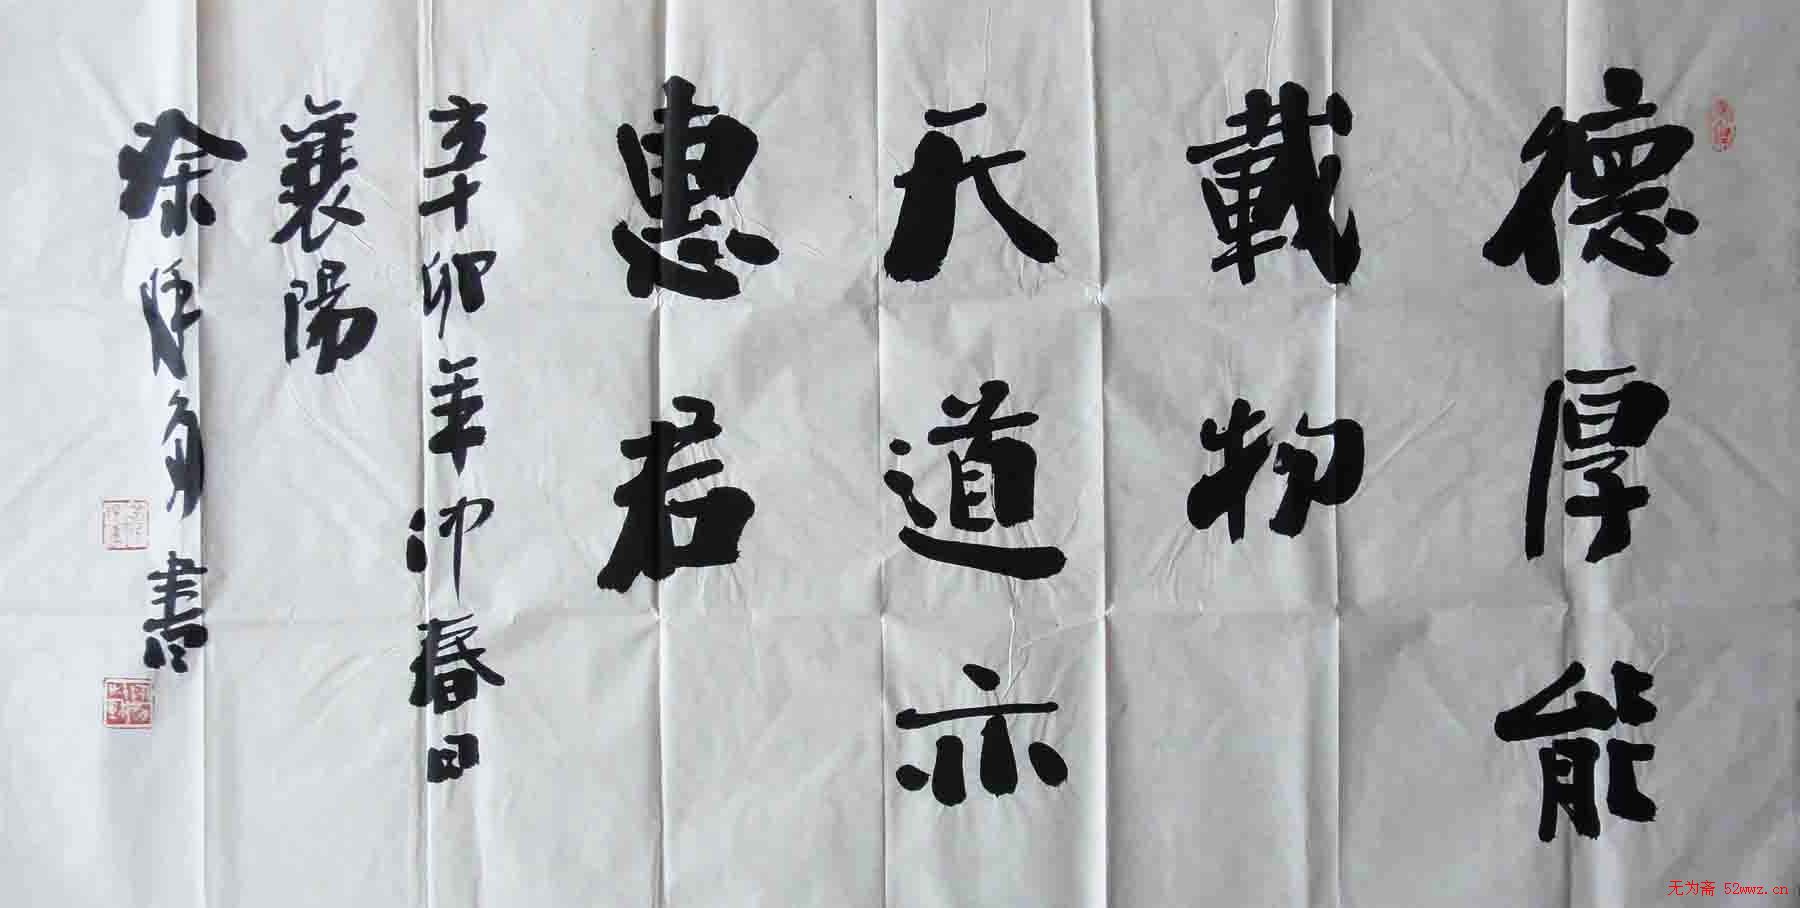 德厚能
載物
天道亦
惠君
辛卯年仲春日
襄陽
書
无为斋 52wwz.cn